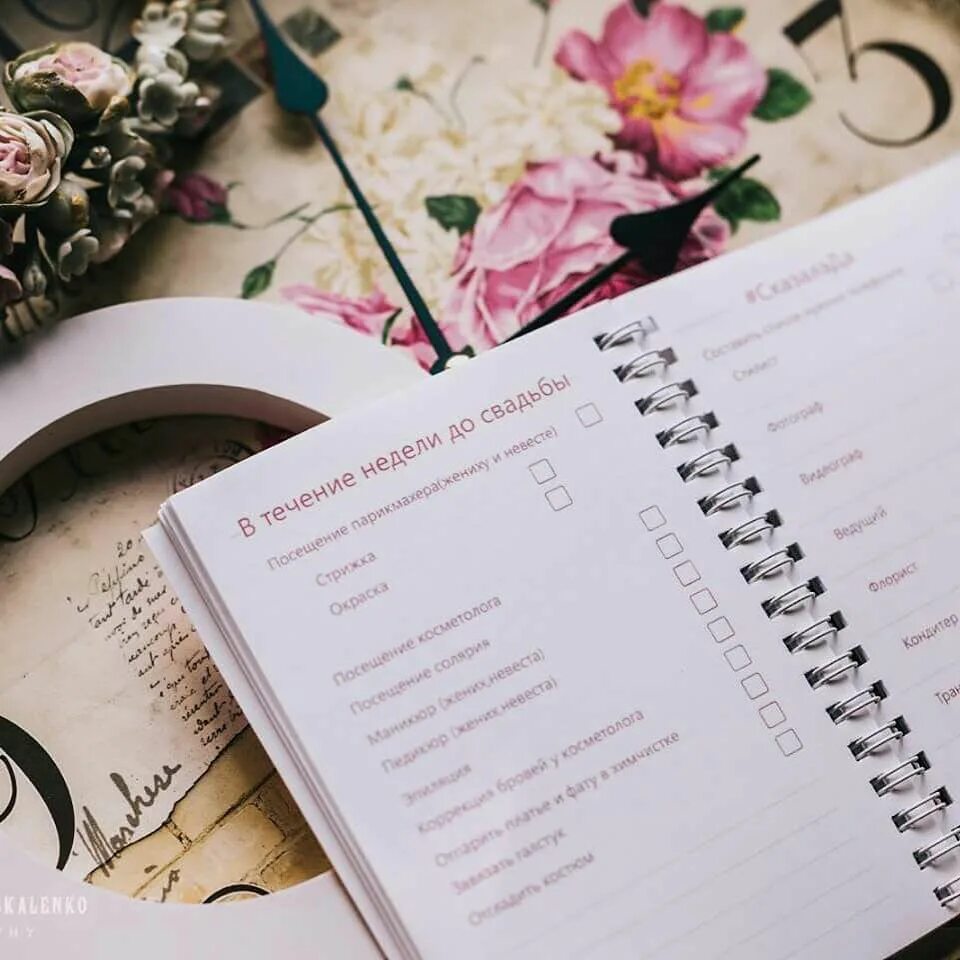 В течение недели до свадьбы
Посещение парикмахера(жениху и невесте)
Стрижка
Окраска
Посещение косметолога
Посещение солярия
Маникюр (жених,невеста)
Педикюр (жених,невеста)
Эпиляция
Коррекция бровей у косметолога
Отпарить платье и фату в химчистке
Завязать галстук
Отгладить костюм
#СказалаДа
Составить список нужных телефонов
Стилист
Фотограф
Видеограф
Ведущий
Флорист
Кондитер
Тран
5
Marchese
KALENKO